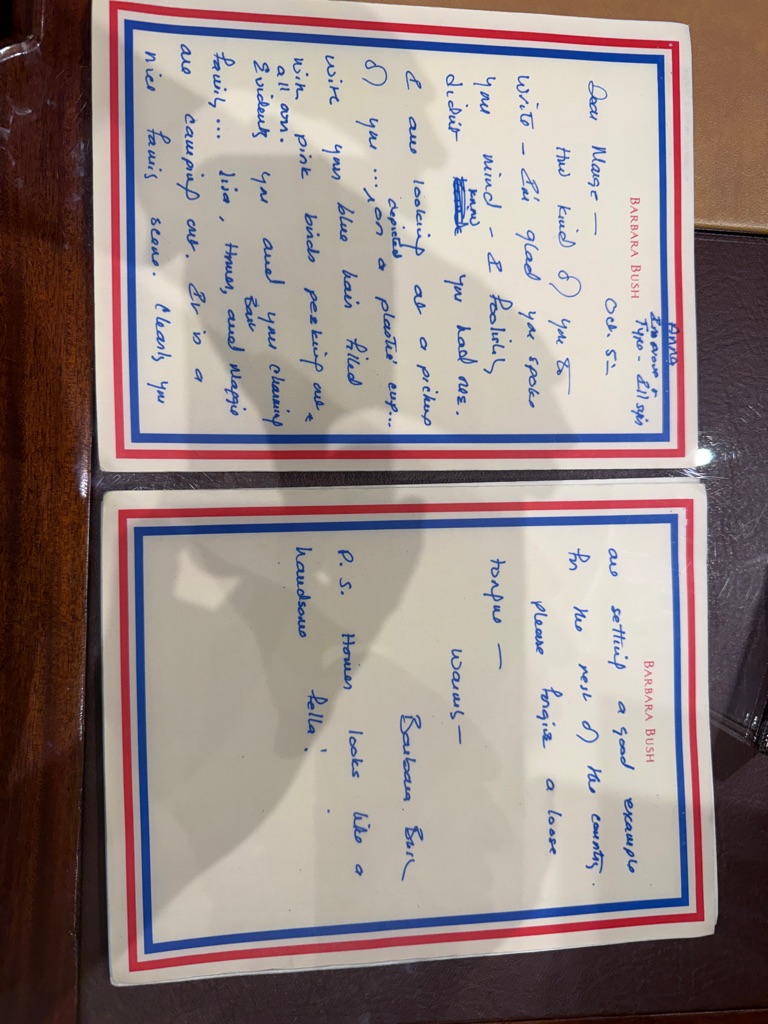 BARBARA BUSH
Anna
Improve &
Type - I'll sign
Oct. 5-
Dear Marge -
How kind of you to
write - I'm glad you spoke
your mind - I foolishly
didn't know you had one.
I am looking at a picture
of you ... depicted on a plastic cup...
with your blue hair filled
with pink birds peeking out
all over.
Evidently you and your charming
family ... Lisa, Homer, Bart and Maggie
are camping out. It is a
nice family scene. Clearly you
BARBARA BUSH
are setting a good example
for the rest of the country.
please forgive a loose
tongue -
Warmly -
Barbara Bush
P.S. Homer looks like a
handsome fella!